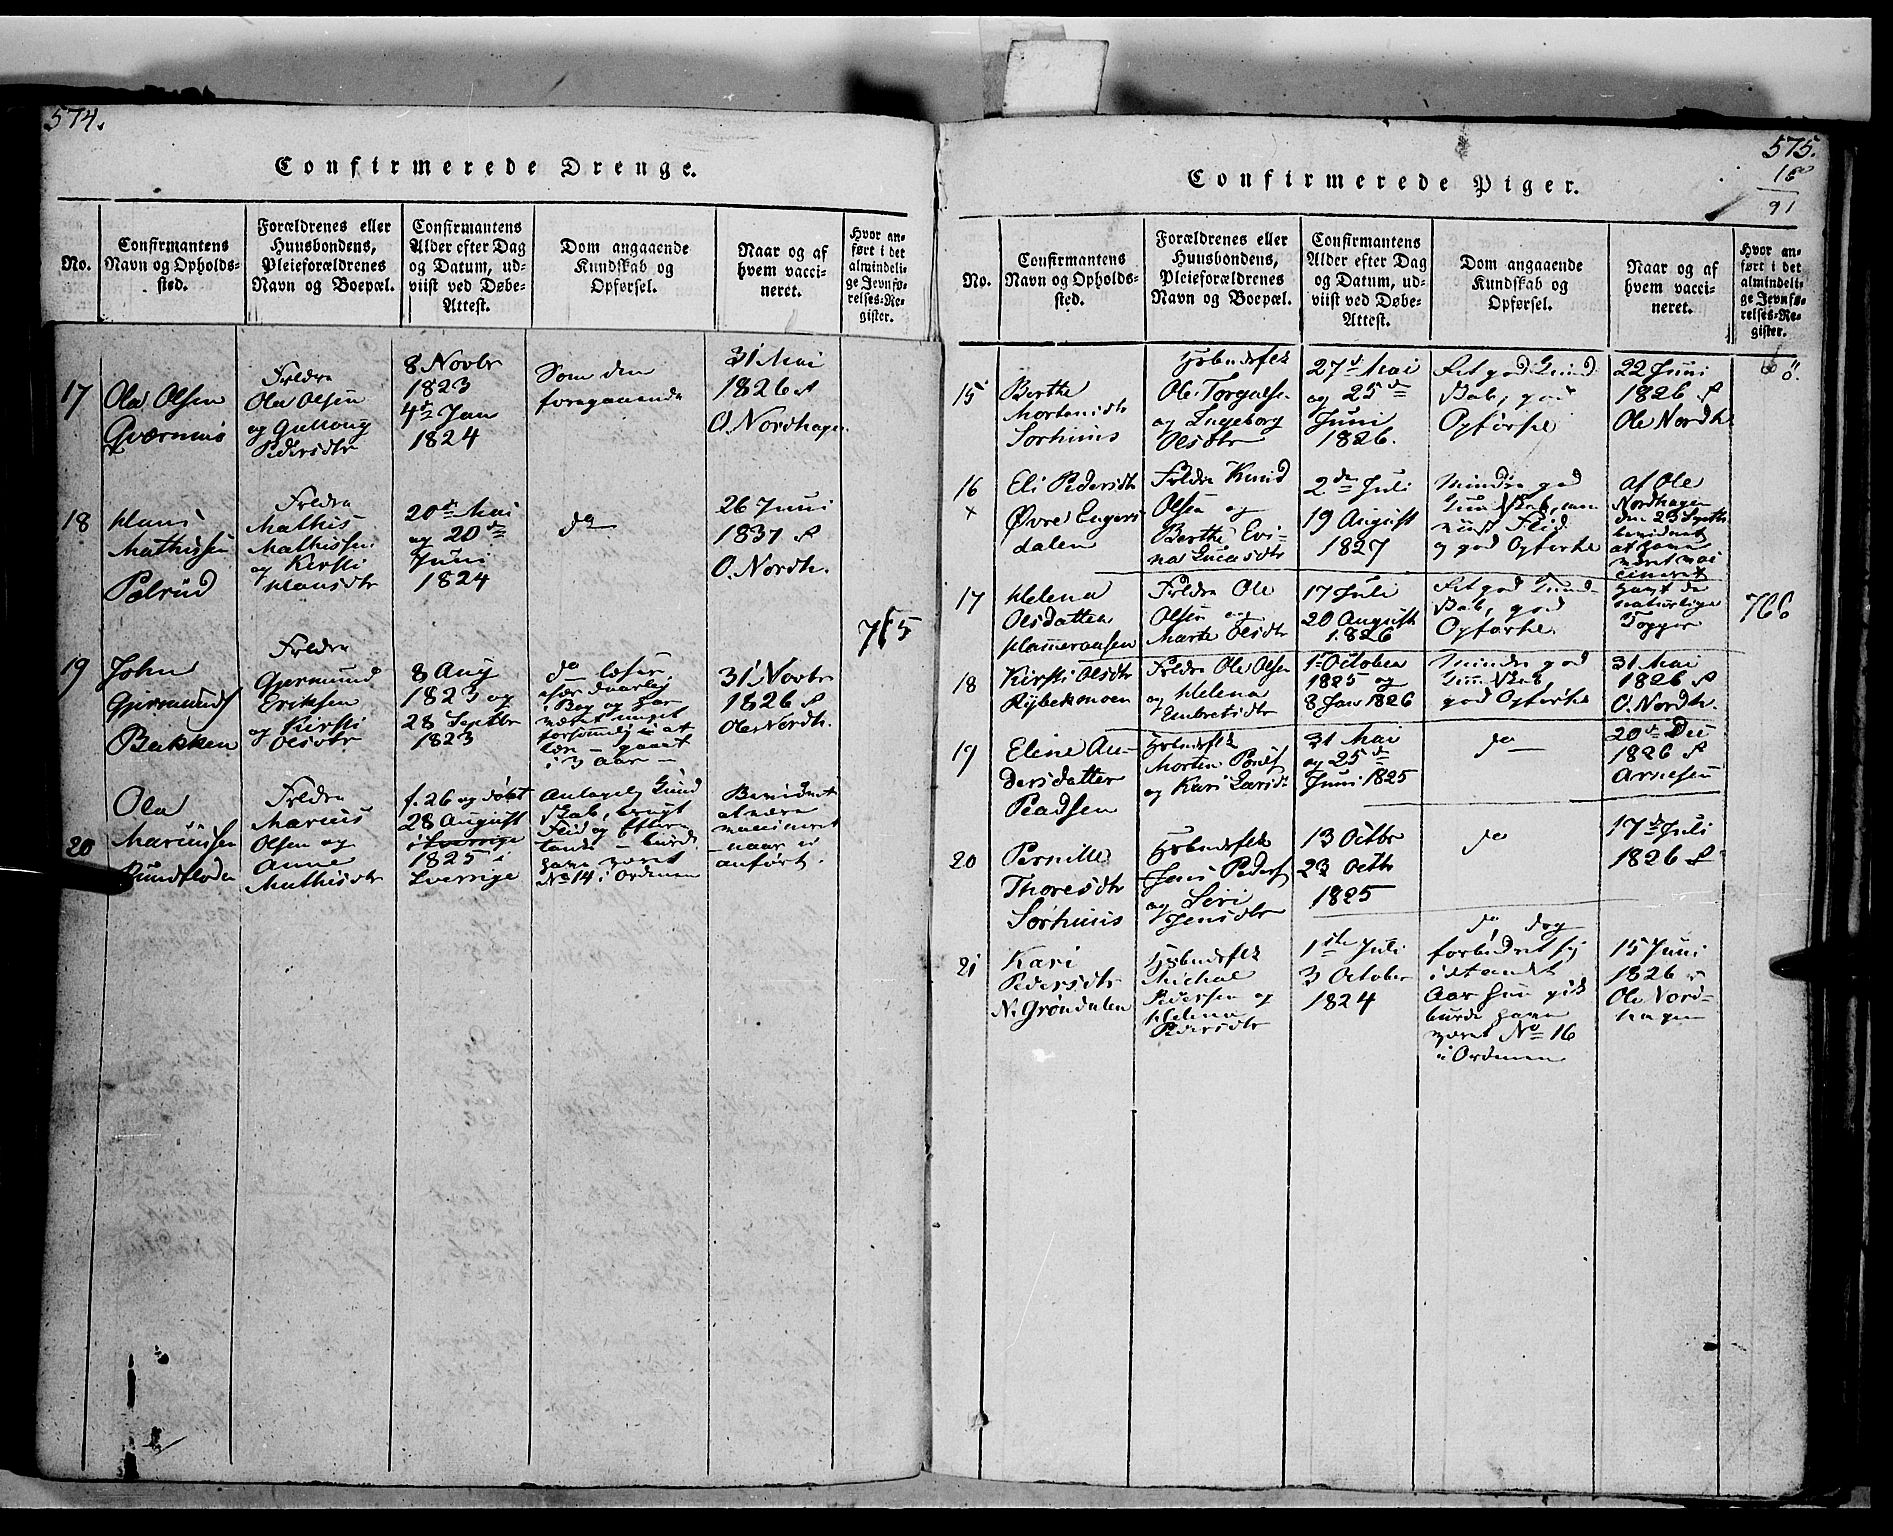 574.
Confirmerede Drenge.
No.
Confirmantens
Navn og Opholds-
sted.
Forældrenes eller
Huusbondens,
Pleieforældrenes
Navn og Boepæl.
Confirmantens
Alder efter Dag
og Datum, ud-
viist ved Døbe-
Attest.
Dom angaaende
Kundskab og
Opførsel.
Naar og af
hvem vacci-
neret.
Hvor an-
ført i det
almindeli-
ge Jevnfø-
relses-Re-
gister.
17
Ola Olsen
Qværnnæs
Frldre
Ola Olsen
og Gullaug
Pedersdtr
8 Novbr
1823
4de Jan
1824
Som den
foregaaende
31 Mai
1826 af
O. Nordhagen
18
Hans
Mathissen
Pelrud
Frldre
Mathis
Mathissen
og Kirsti
Hansdtr
20de Mai
og 20de
Juni
1824
do
26 Juni
1837 af
O. Nordh.
715
19
John
Gjermunds
Bakken
Frldre
Gjermund
Eriksen
og Kirsti
Olsdtr
8 Aug
1823 og
28 Septbr
1823
do læser
især daarlig
i Bog og har
været meget
forsømmelig i at
lære – gaaet
i 3 aar –
31 Novbr
1826 af
Ole Nordh.
20
Ola
Mariussen
Sundfloden
Frldre
Marius
Olsen og
Anne
Mathisdtr
f. 26 og døbt
28 August
i Sverrige
1825 i
Sverrige
Antagelig Kund
skab, brugt
Flid og Eftern
tanke – burde
have været
No 14 i Ordenen
Bevidnet
at være
vaccineret
– naar ei
anført.
575.
16
91
Confirmerede Piger.
No.
Confirmantens
Navn og Opholds-
sted.
Forældrenes eller
Huusbondens,
Pleieforældrenes
Navn og Boepæl.
Confirmantens
Alder efter Dag
og Datum, ud-
viist ved Døbe-
Attest.
Dom angaaende
Kundskab og
Opførsel.
Naar og af
hvem vacci-
neret.
Hvor an-
ført i det
almindeli-
ge Jevnfø-
relses-Re-
gister.
15
Berthe
Mortensdtr
Sorhuus
Hsbndsflk
Ole Torgals.
og Ingeborg
Olsdtr
27de Mai
og 25de
Juni
1826.
Ret god Kund
skab, god
Opførsel
22 Juni
1826 af
Ole Nordh.
16
×
Eli Pedersdtr
Øvre Engers
dalen
Frldre Knud
Olsen og
Berthe Evi-
na Lucasdtr
2den Juli
19 August
1827
Mindre god
Kundskab, men
viist Flid
og god Opførsel
af Ole
Nordhagen
den 23 Septb
bevidnet
at have
været vac
cineret
17
Helena
Olsdatter
Hammeraasen
Frldre Ole
Olsen og
Marte Olsdtr
17 Juli
20 August
1826
Ret god Kund-
skab, god
Opførsel
havt de
naturlige
Kopper
766
18
Kirsti Olsdtr
Rybekmoen
Frldre Ole Olsen
og Helena
Embretsdtr
1 October
1825 og
8 Jan 1826
Mindre god
Kundskab,
god Opførsel
31 Mai
1826 af
O. Nordh.
19
Eline An-
dersdatter
Pladsen
Hsbndsflk
Morten Pouls
og Kari Larsdtr
31 Mai
og 25de
Juni 1825
do
20de Dec
1826 af
Arnesen
20
Pernille
Thoresdtr
Sørhuus
Hsbndsflk
Jens Peders
og Siri
Jensdtr
13 Octbr
23 Octbr
1825
do
17de Juli
1826 af
21
Kari
Pedersdtr
N. Grøndalen
Hsbndsflk
Michal
Pedersen og
Helena
Pedersdtr
1ste Juli
3 October
1824
do, dog
forbedret sig
idet andet
Aar hun gik
burde have
været No 16
i Ordenen
15 Juni
1826 af
Ole Nord-
hagen